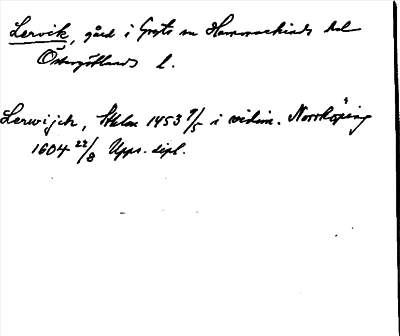 Lervik, gård i Gryts sn Hammarkinds hd
Östergötlands l.
Lerwijch, Sthlm 1453 9/5 i vidim. Norrköping
1604 22/8 Upps. dipl.